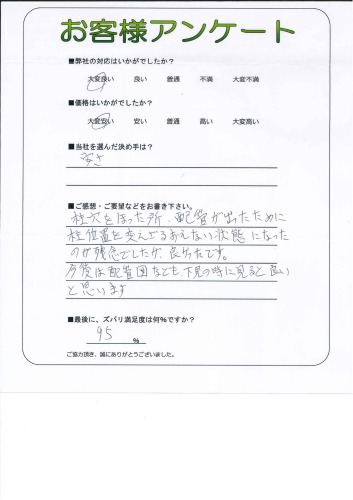 お客様アンケート
■弊社の対応はいかがでしたか?
大変良い 良い 普通 不満 大変不満
■価格はいかがでしたか?
大変安い 安い 普通 高い 大変高い
■当社を選んだ決め手は?
安さ
■ご感想・ご要望などをお書き下さい。
柱穴をほった所、配管が出たために
柱位置を変えざるおえない状態になった
のが残念でしたが、良かったです。
今後は配置図なども、下見の時に見ると良い
と思います
■最後に、ズバリ満足度は何%ですか?
95 %
ご協力頂き、誠にありがとうございました。